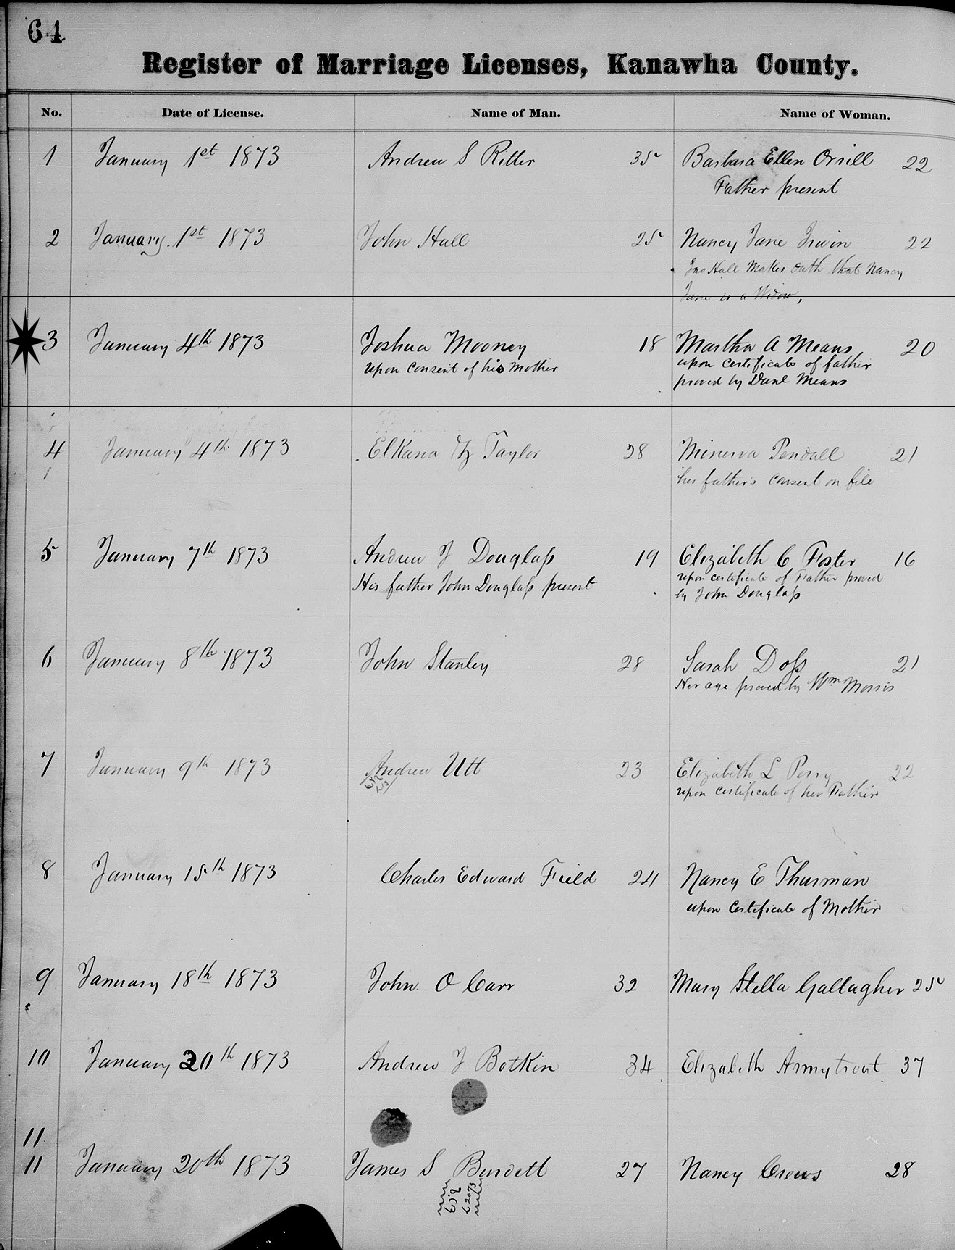 64
Register of Marriage Licenses, Kanawha County.
No. Date of License. Name of Man. Name of Woman.
1 January 1st 1873 Andrew S Ritter 35 Barbara Ellen Orsill 22
Father present
2 January 1st 1873 John Hall 25 Nancy Jane Irwin 22
Jno Hall makes oath that Nancy
Jane is a Widow,
3 January 4th 1873 Joshua Mooney 18 Martha A Means 20
upon consent of his Mother upon certificate of father
proved by Danl Means
4 January 4th 1873 Elkana Taylor 28 Minerva Pendall 21
her father's consent on file
5 January 7th 1873 Andrew J Douglass 19 Elizabeth C Foster 16
His father John Douglass present upon certificate of Father proved
by John Douglass
6 January 8th 1873 John Stanley 28 Sarah Doss 21
Her age proved by Wm Morris
7 January 9th 1873 Andrew Utt 23 Elizabeth L Perry 22
upon certificate of her Father
8 January 15th 1873 Charles Edward Field 24 Nancy E Thurman
upon certificate of Mother
9 January 18th 1873 John O Carr 32 Mary Stella Gallagher 25
10 January 20th 1873 Andrew J Botkin 34 Elizabeth Armytrout 37
11
11 January 20th 1873 James S Burdett 27 Nancy Crews 28